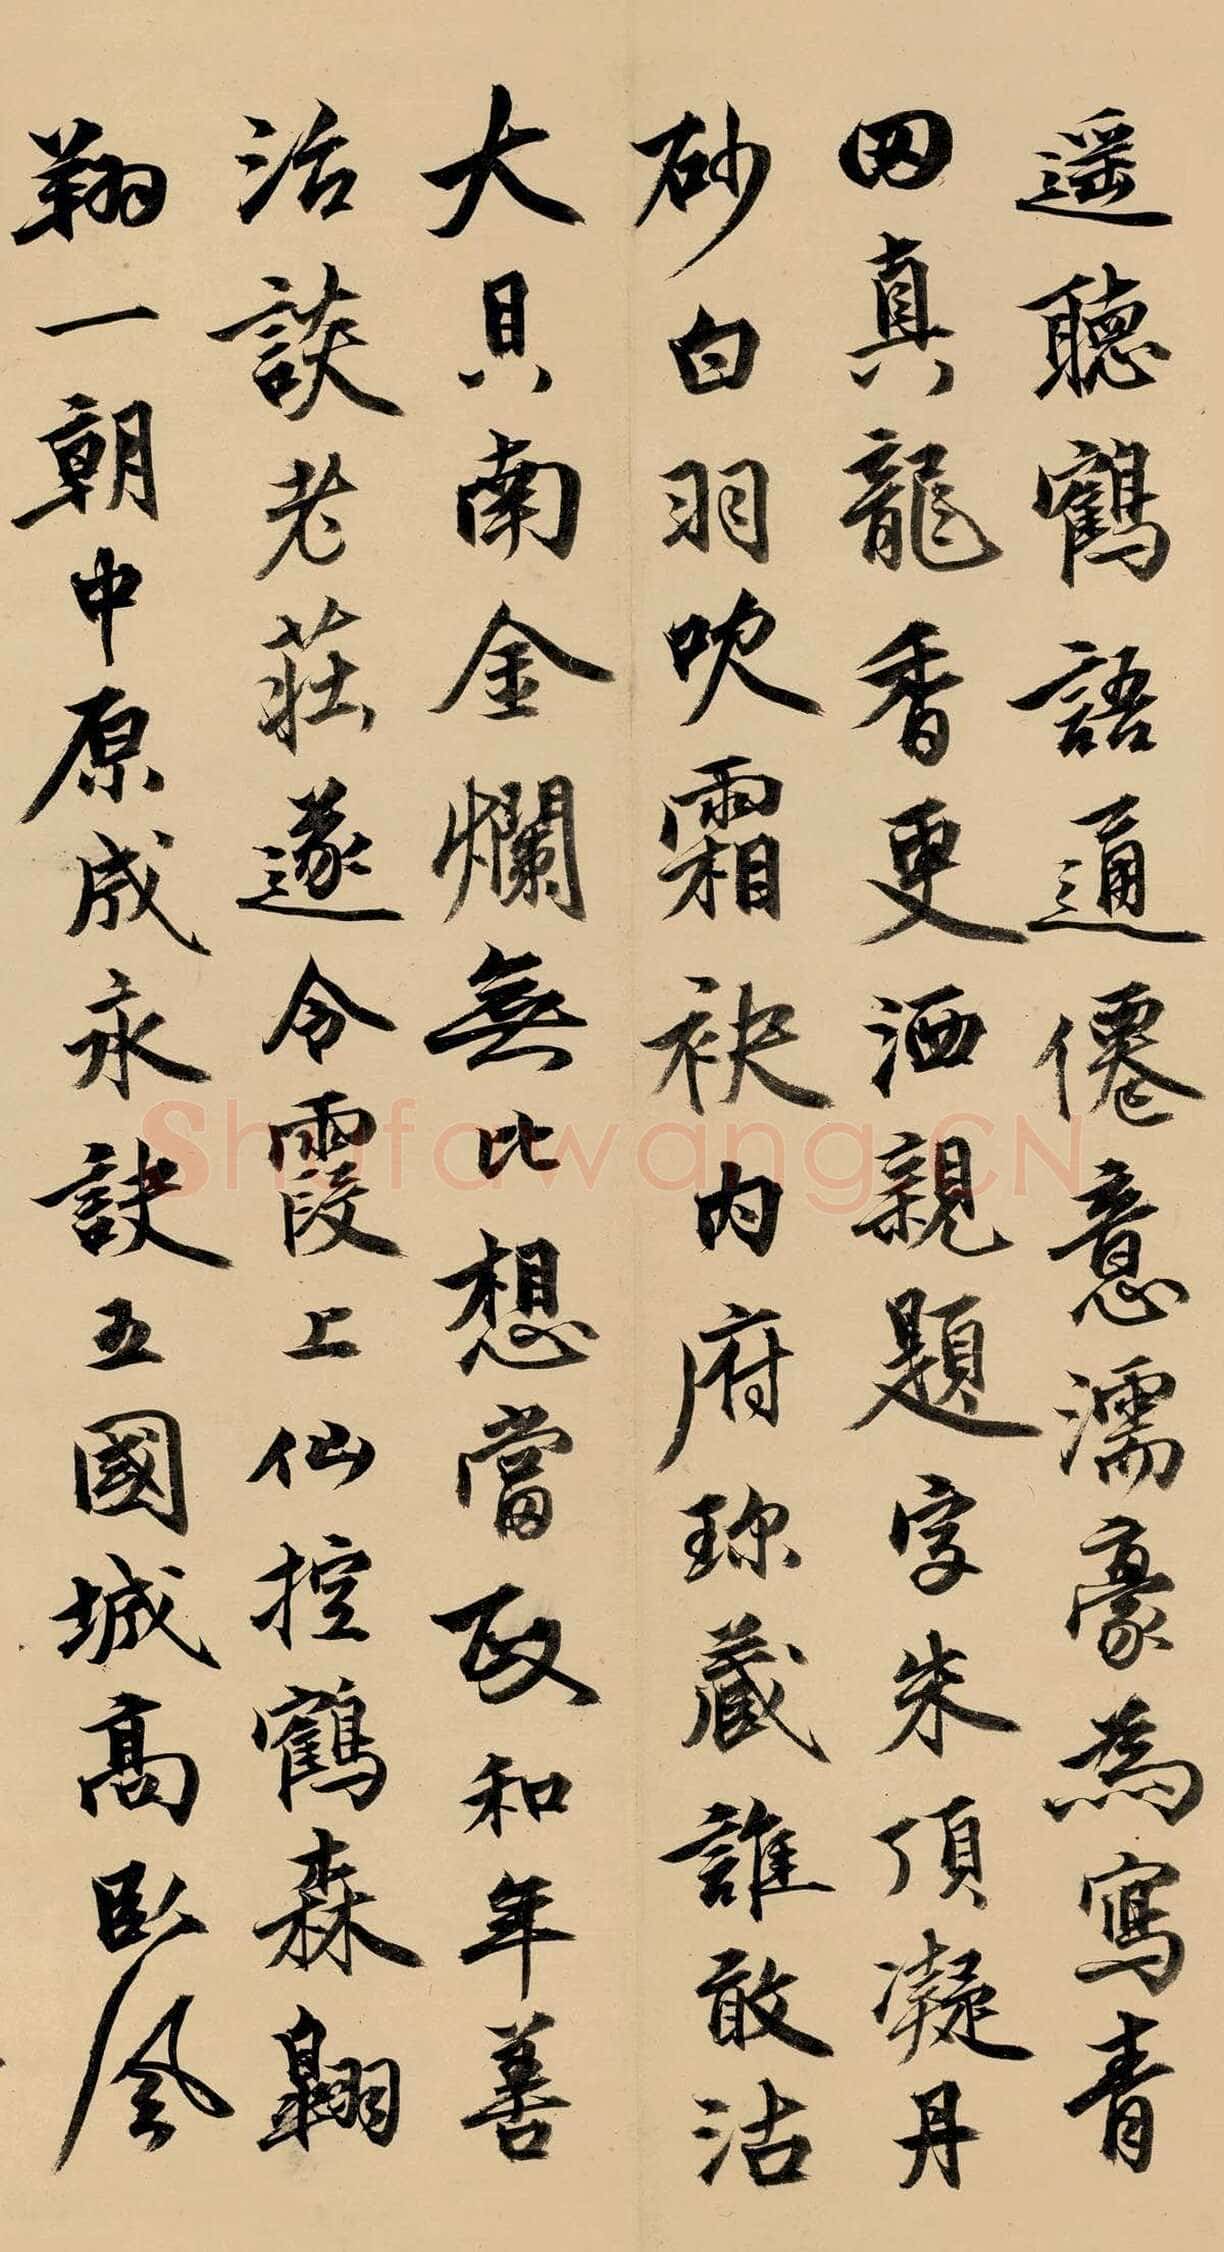 遥聽鶴語通僊意濡豪為寫青
田真龍香更洒親題字朱頂凝丹
砂白羽吹霜袂內府珎藏誰敢沽
大貝南金爛無比想當政和年善
治談老莊遂令霞上仙控鶴森翱
翔一朝中原成永訣五國城高臥風
ShufawangCN